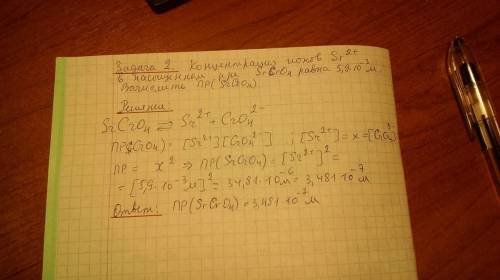 Задача 2. Концентрация ионов Sr²⁺
в насыщенном р-ре SrCrO₄ равна 5,9·10⁻³ м.
Вычислить ПР(SrCrO₄).
Решение
SrCrO₄ ⇌ Sr²⁺ + CrO₄²⁻
ПР(SrCrO₄) = [Sr²⁺][CrO₄²⁻] ; [Sr²⁺] = x = [CrO₄²⁻]
ПР = x² ⇒ ПР(SrCrO₄) = [Sr²⁺]² =
= [5,9·10⁻³м]² = 34,81·10⁻⁶м = 3,481·10⁻⁷м
Ответ: ПР(SrCrO₄) = 3,481·10⁻⁷м